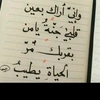 وإني أراك بعين
قلبي جنة يامن
بقربك مُرّ
الحياة يطيب